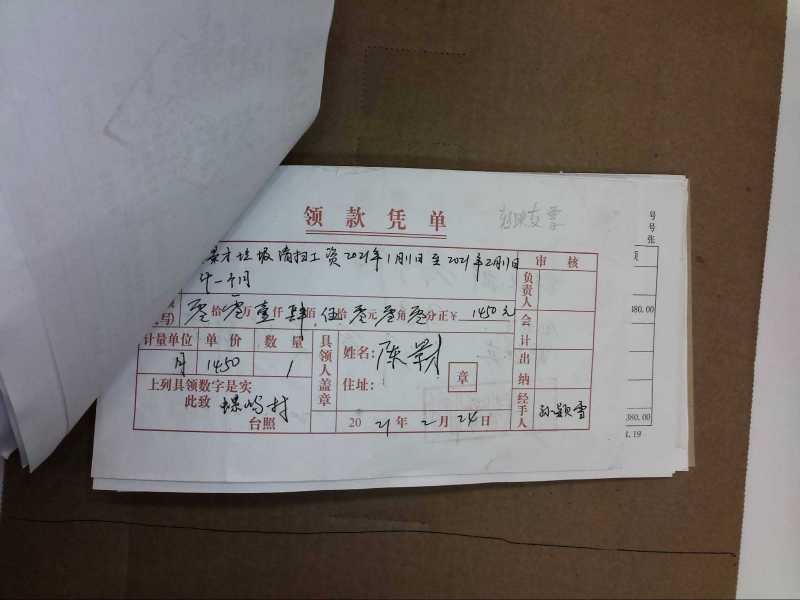 领款凭单
垃圾清扫工资2021年1月11日至2021年2月11日
计一个月
零拾零万壹仟肆佰伍拾零元零角零分正¥1450元
计量单位 单价 数量
月 1450 1
上列具领数字是实
此致
村
台照
具领人盖章
姓名: 陈
住址:
章
2021年2月24日
审核
负责人
会计
出纳
经手人
孙颖雪
号
号
张
380.00
380.00
1.19